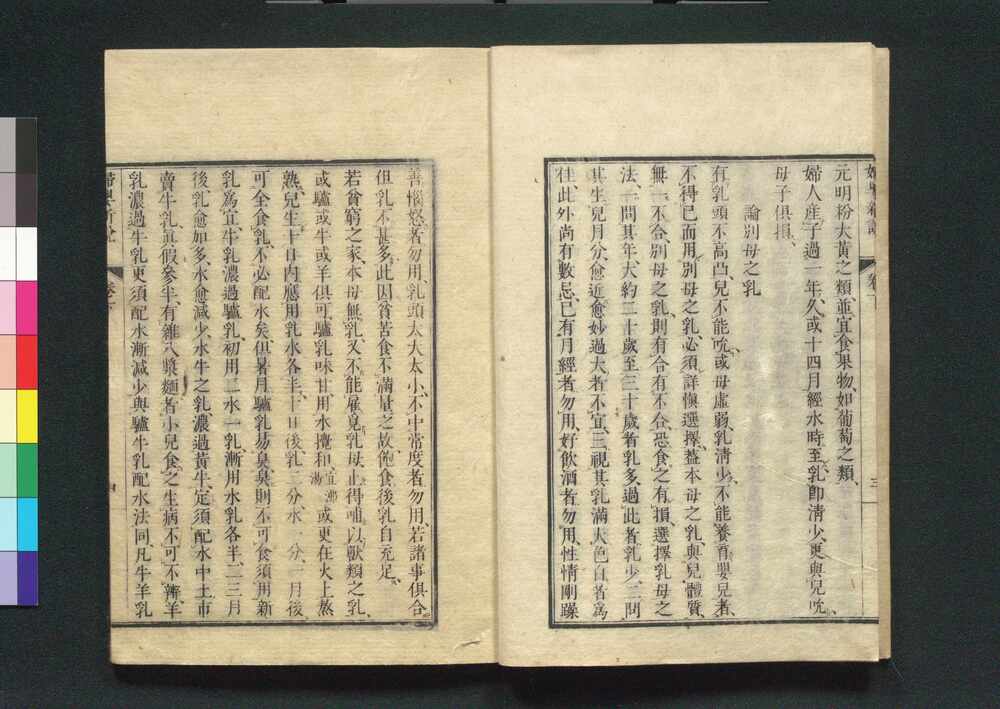 元明粉大黃之類、並宜食果物、如葡萄之類、
婦人產子過一年久、或十四月經水時至、乳卽淸少、更與兒吮、
母子俱損、
論別母之乳
有乳頭不高凸、兒不能吮、或母虛弱、乳淸少、不能養育嬰兒者、
不得已而用別母之乳、必須詳愼選擇、蓋本母之乳、與兒體質、
無一不合、別母之乳、則有合有不合、恐食之有損、選擇乳母之
法、一問其年、大約二十歲至三十歲者乳多、過此者乳少、二問
其生兒月分、愈近愈妙、過大者不宜、三視其乳滿大色白者爲
佳、此外尚有數忌、已有月經者勿用、好飲酒者勿用、性情剛躁
善惱怒者勿用、乳頭太大太小、不中常度者勿用、若諸事俱合、
但乳不甚多、此因貧苦食不滿量之故、飽食後乳自充足、
若貧窮之家、本母無乳、又不能雇覓乳母、止得哺以獸類之乳、
或驢或牛或羊俱可、驢乳味甘、用水攪和、宜沸湯或更在火上蒸
熱、兒生十日內、應用乳水各半、十日後、乳二分水一分、一月後
可全食乳、不必配水矣、但暑月驢乳易臭、臭則不可食、須用新
乳爲宜、牛乳濃過驢乳、初用二水一乳、漸用水乳各半、二三月
後、乳愈加多、水愈減少、水牛之乳、濃過黃牛、定須配水、中土市
賣牛乳、眞假參半、有雜入漿麵者、小兒食之生病、不可不辨、羊
乳濃過牛乳、更須配水漸減少、與驢牛乳配水法同、凡牛羊乳